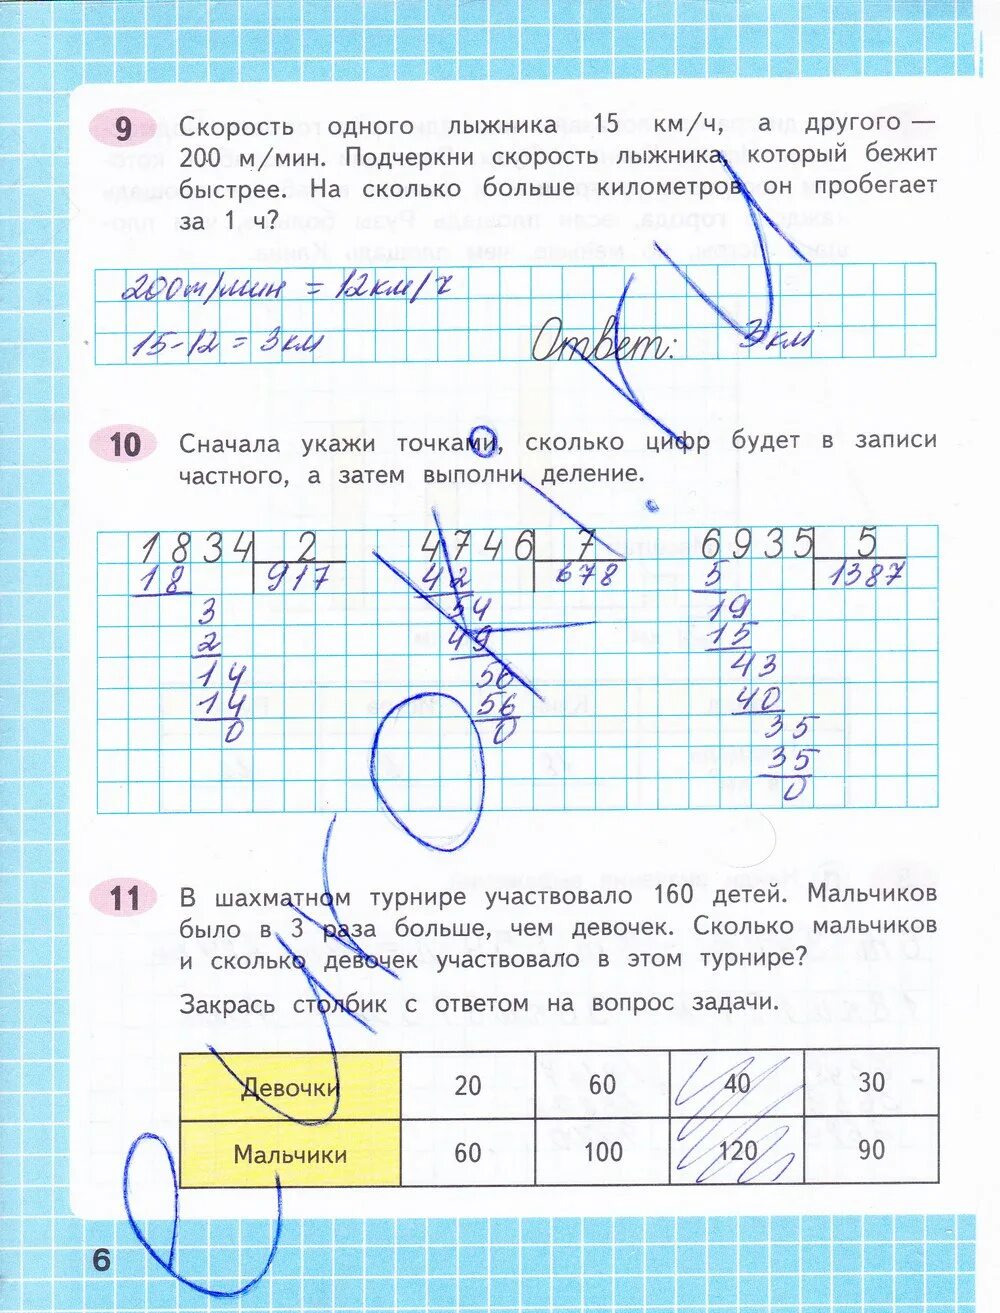 9
Скорость одного лыжника 15 км/ч, а другого —
200 м/мин. Подчеркни скорость лыжника, который бежит
быстрее. На сколько больше километров он пробегает
за 1 ч?
200м/мин = 12км/ч
15-12 = 3км
Ответ: 3км
10
Сначала укажи точками, сколько цифр будет в записи
частного, а затем выполни деление.
1834 2 4746 7 6935 5
18 917 42 678 5 1387
3 54 19
2 49 15
14 56 43
14 56 40
0 0 35
35
0
11
В шахматном турнире участвовало 160 детей. Мальчиков
было в 3 раза больше, чем девочек. Сколько мальчиков
и сколько девочек участвовало в этом турнире?
Закрась столбик с ответом на вопрос задачи.
Девочки 20 60 40 30
Мальчики 60 100 120 90
6